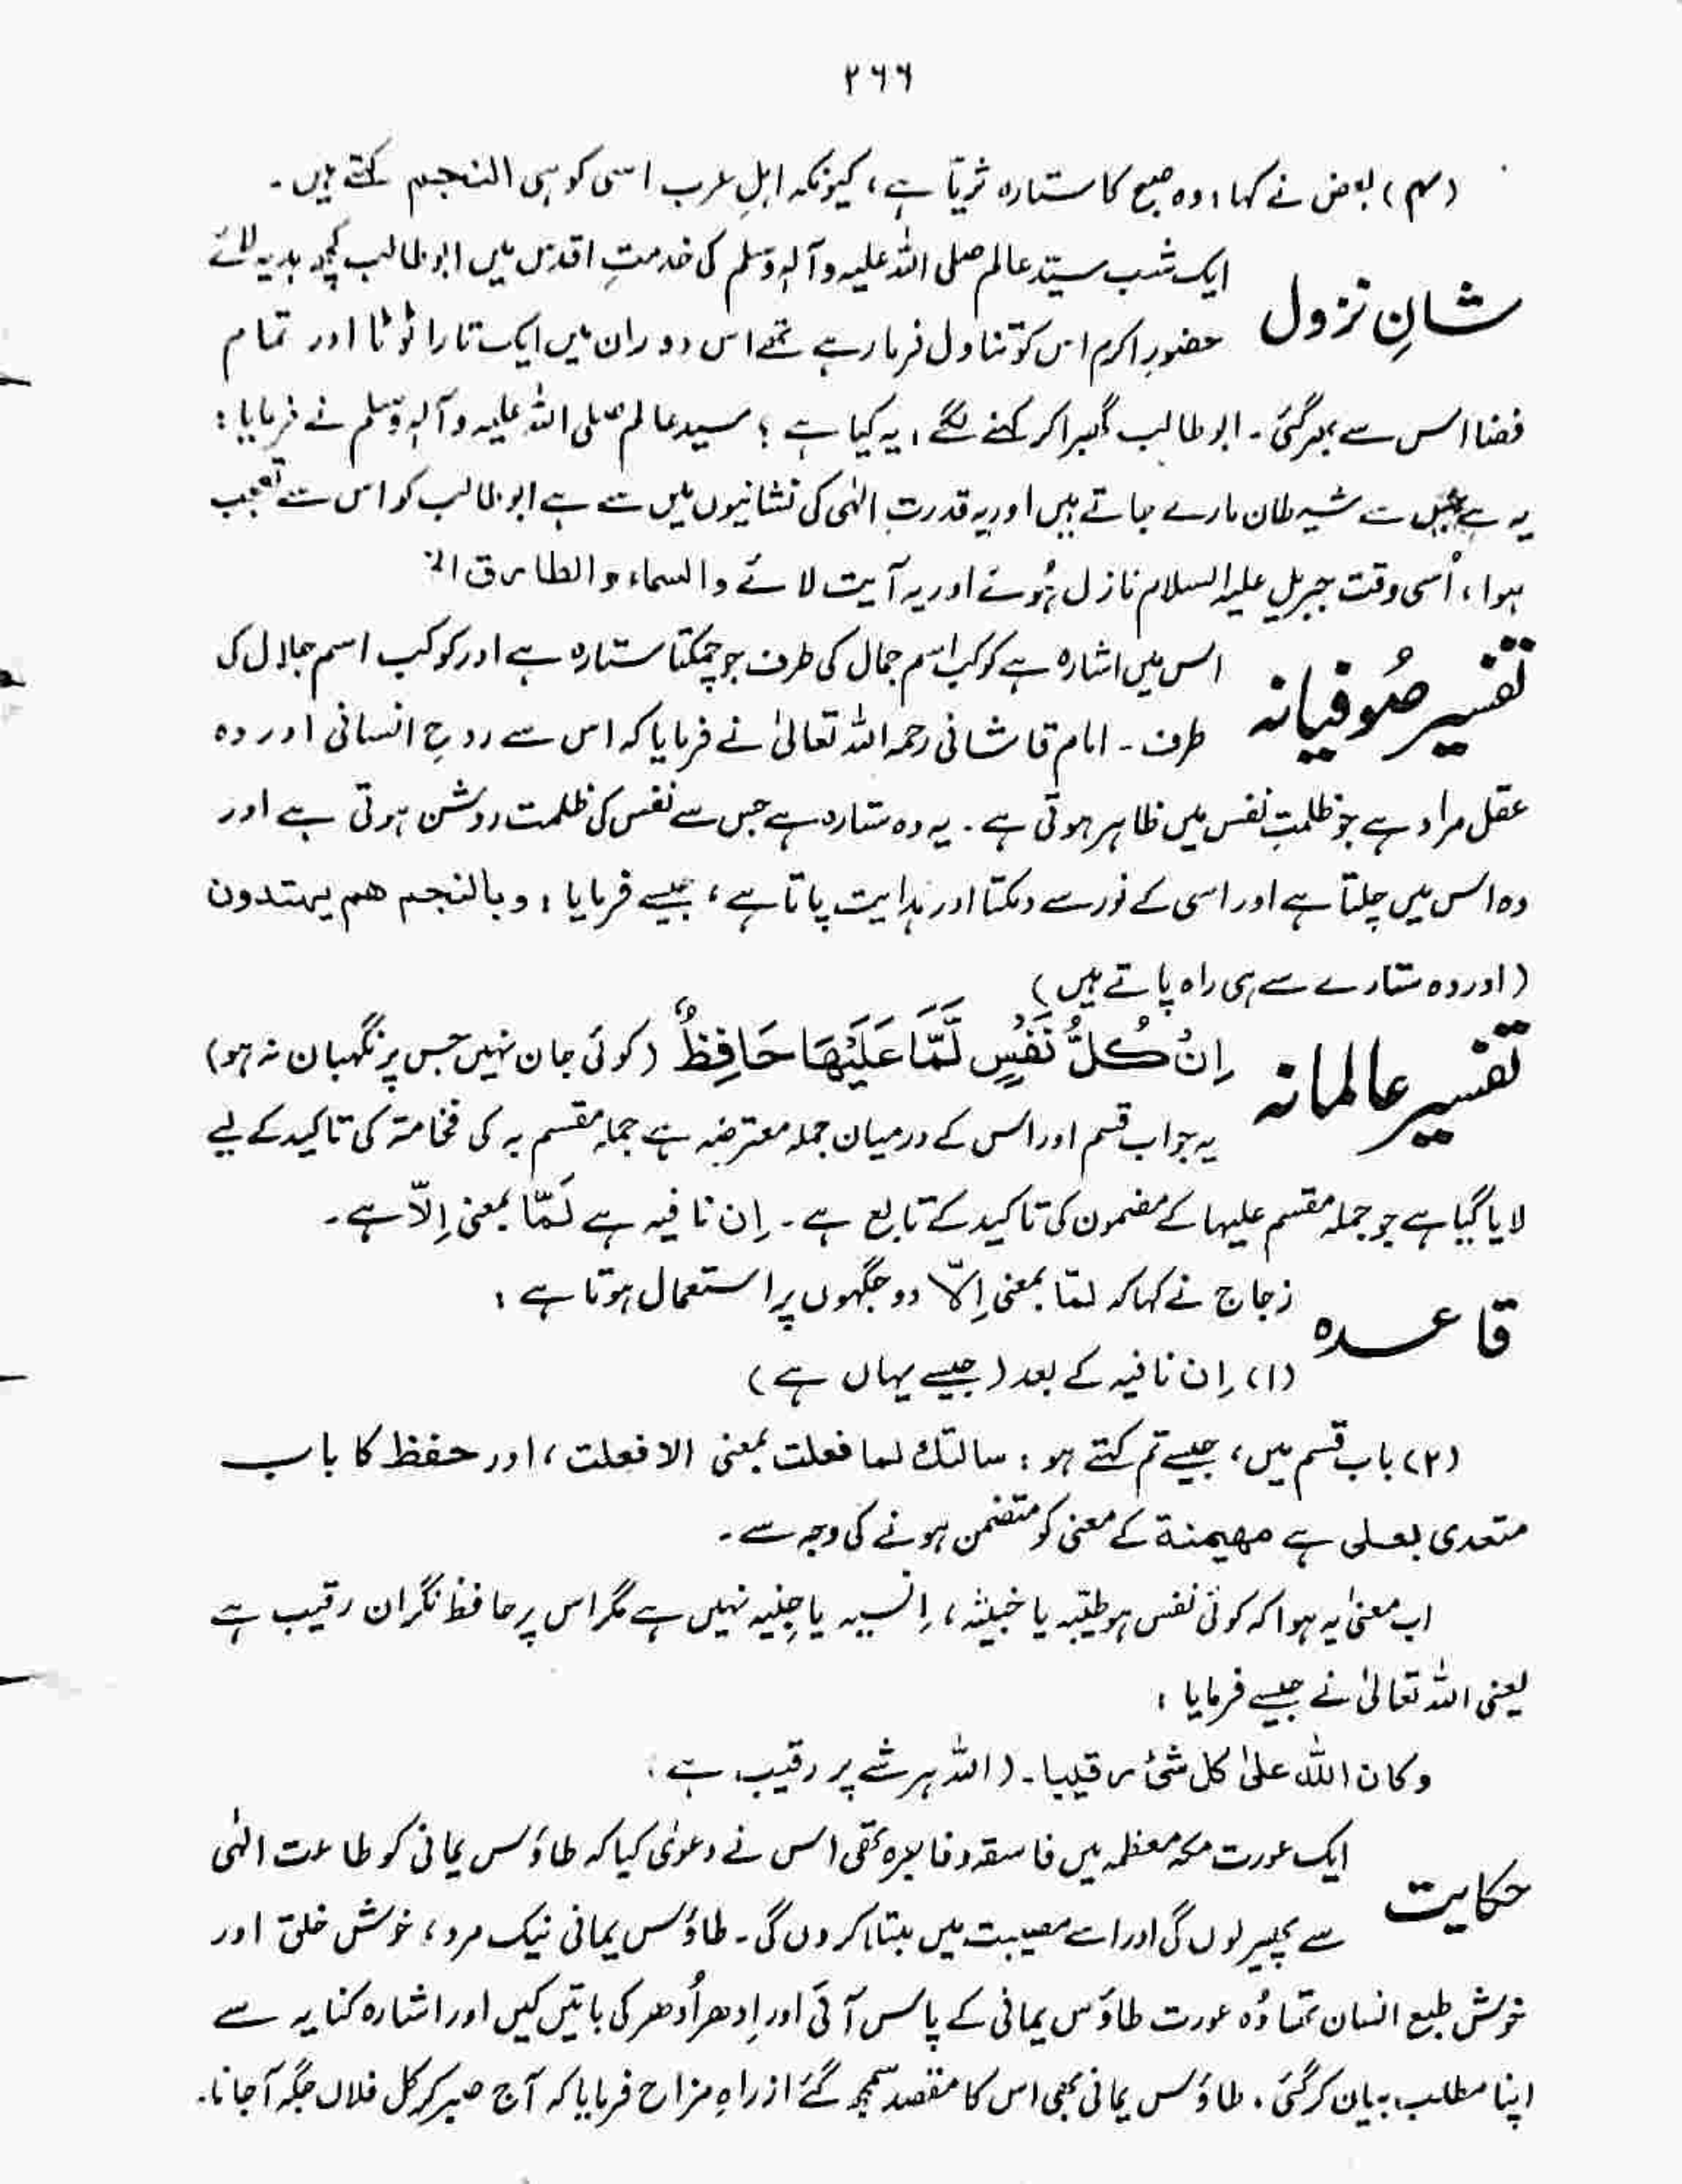 ۲۶۶
(۴) بعض نے کہا: وہ صبح کا ستارہ ثریّا ہے، کیونکہ اہلِ عرب اسی کو ہی النجم کہتے ہیں۔
شانِ نزول
ایک شب سیّدِ عالم صلی اللہ علیہ وآلہٖ وسلم کی خدمتِ اقدس میں ابو طالب کچھ ہدیہ لائے
حضورِ اکرم اس کو تناول فرما رہے تھے اس دوران میں ایک تارا ٹوٹا اور تمام
فضا اس سے بھر گئی۔ ابو طالب گھبرا کر کہنے لگے، یہ کیا ہے؟ سیدِ عالم صلی اللہ علیہ وآلہٖ وسلم نے فرمایا:
یہ ہے جس سے شیطان مارے جاتے ہیں اور یہ قدرتِ الٰہی کی نشانیوں میں سے ہے ابو طالب کو اس سے تعجب
ہوا، اُسی وقت جبریل علیہ السلام نازل ہُوئے اور یہ آیت لائے والسماء والطارق الخ
تفسیر صُوفیانہ
اس میں اشارہ ہے کوکب اسم جمال کی طرف جو چمکتا ستارہ ہے اور کوکب اسم جلال کی
طرف۔ امام قاشانی رحمہ اللہ تعالیٰ نے فرمایا کہ اس سے روحِ انسانی اور وہ
عقل مراد ہے جو ظلمتِ نفس میں ظاہر ہوتی ہے۔ یہ وہ ستارہ ہے جس سے نفس کی ظلمت روشن ہوتی ہے اور
وہ اس میں چلتا ہے اور اسی کے نور سے دمکتا اور ہدایت پاتا ہے، جیسے فرمایا: وبالنجم هم یهتدون
(اور وہ ستارے سے ہی راہ پاتے ہیں)
تفسیر عالمانہ
اِنْ كُلُّ نَفْسٍ لَّمَّا عَلَيْهَا حَافِظٌ (کوئی جان نہیں جس پر نگہبان نہ ہو)
یہ جواب قسم اور اس کے درمیان جملہ معترضہ ہے جملہ مقسم بہ کی فخامۃ کی تاکید کے لیے
لایا گیا ہے جو جملہ مقسم علیہا کے مضمون کی تاکید کے تابع ہے۔ اِن نافیہ ہے لَمّا بمعنی اِلّا ہے۔
قاعدہ
زجاج نے کہا کہ لمّا بمعنی اِلّا دو جگہوں پر استعمال ہوتا ہے:
(۱) اِن نافیہ کے بعد (جیسے یہاں ہے)
(۲) باب قسم میں، جیسے تم کہتے ہو: سالتك لما فعلت بمعنی الا فعلت، اور حفظ کا باب
متعدی بعلی ہے مهيمنة کے معنی کو متضمن ہونے کی وجہ سے۔
اب معنیٰ یہ ہوا کہ کوئی نفس ہو طیّبہ یا خبیثہ، اِنسیہ یا جِنیہ نہیں ہے مگر اس پر حافظ نگران رقیب ہے
یعنی اللہ تعالیٰ نے جیسے فرمایا:
وكان الله علىٰ كل شئ رقيبا۔ (اللہ ہر شے پر رقیب ہے:
حکایت
ایک عورت مکہ معظمہ میں فاسقہ و فاجرہ تھی اس نے دعوٰی کیا کہ طاؤس یمانی کو طاعت الٰہی
سے پھیر لوں گی اور اسے مصیبت میں مبتلا کر دوں گی۔ طاؤس یمانی نیک مرد، خوش خلق اور
خوش طبع انسان تھا وُہ عورت طاؤس یمانی کے پاس آئی اور اِدھر اُدھر کی باتیں کیں اور اشارہ کنایہ سے
اپنا مطلب بیان کر گئی۔ طاؤس یمانی بھی اس کا مقصد سمجھ گئے از راہِ مزاح فرمایا کہ آج صبر کر کل فلاں جگہ آ جانا۔